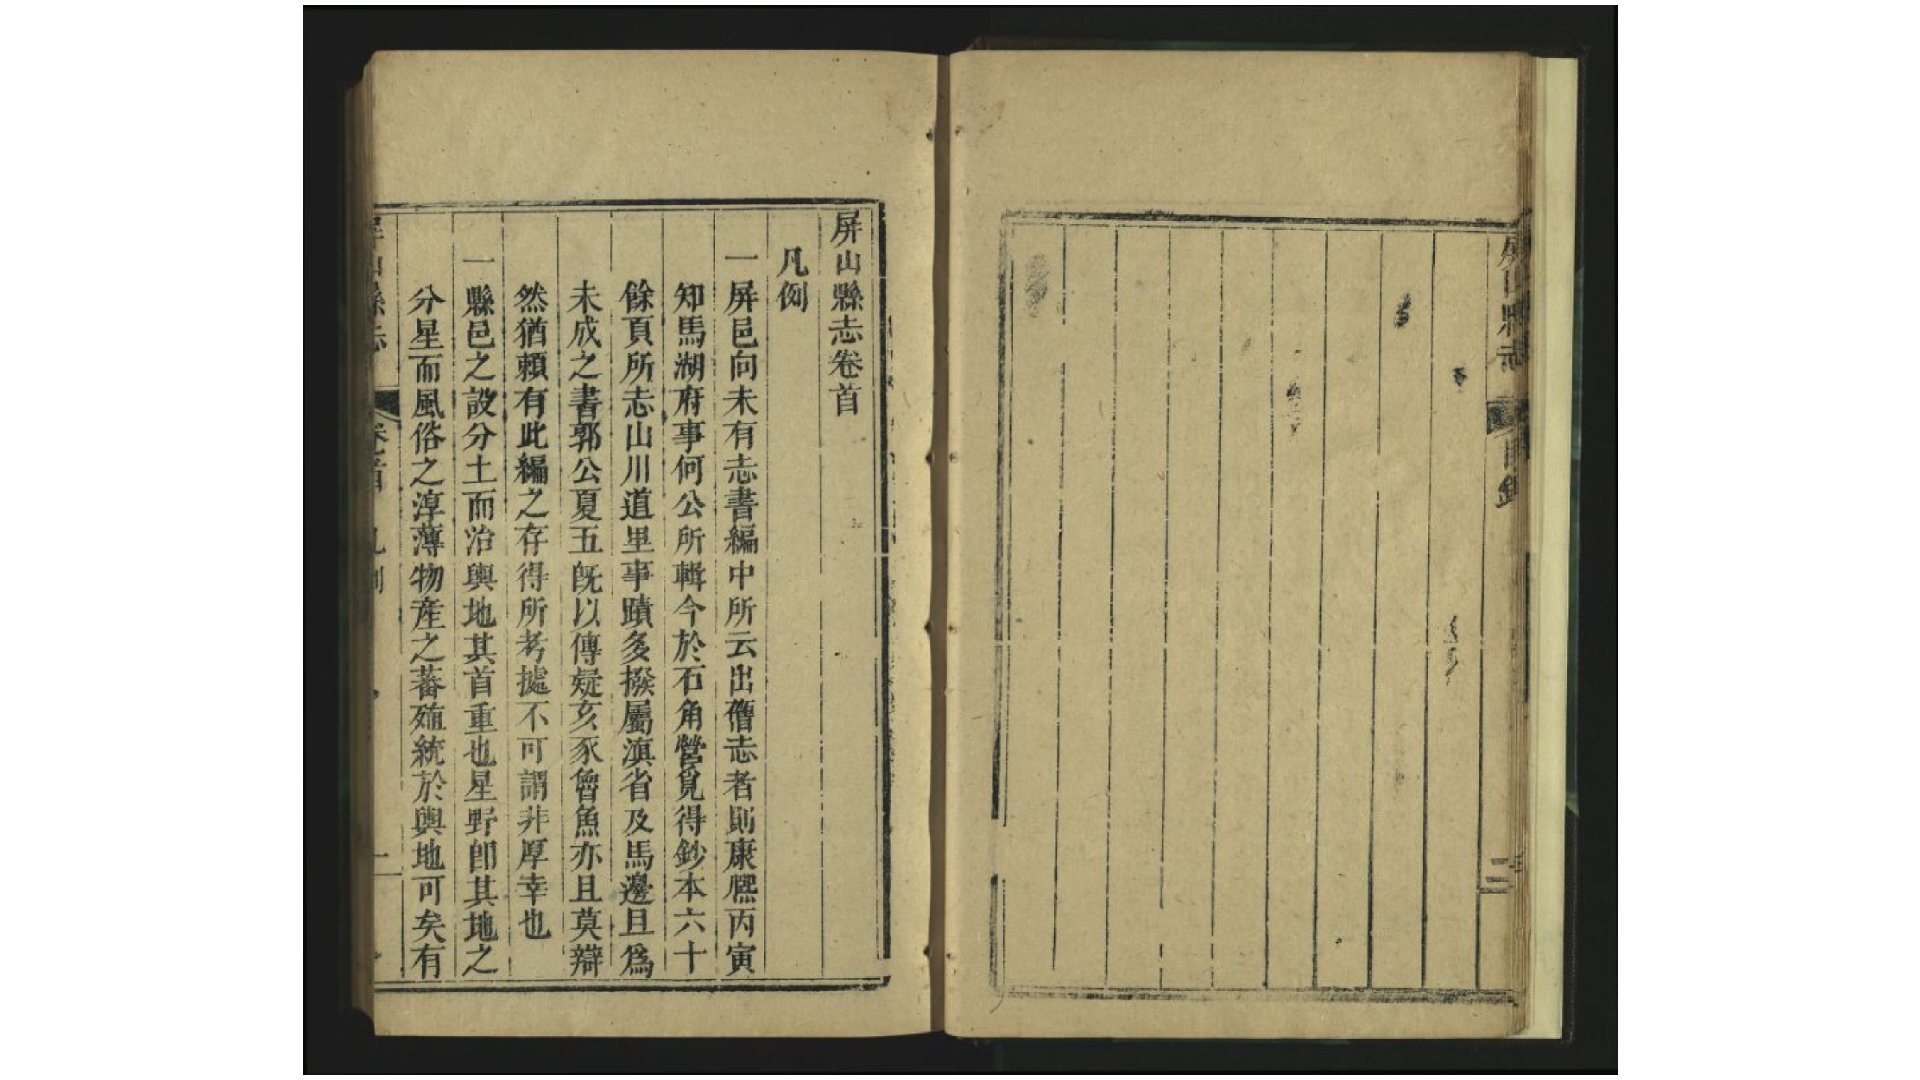 屏山縣志
目錄
三
屏山縣志卷首
凡例
一屏邑向未有志書編中所云出舊志者則康熙丙寅
知馬湖府事何公所輯今於石角營覓得鈔本六十
餘頁所志山川道里事蹟多撥屬滇省及馬邊且爲
未成之書郭公夏五旣以傳疑亥豕魯魚亦且莫辯
然猶賴有此編之存得所考據不可謂非厚幸也
一縣邑之設分土而治輿地其首重也星野卽其地之
分星而風俗之淳薄物産之蕃殖統於輿地可矣有
屏山縣志
卷首
凡例
一